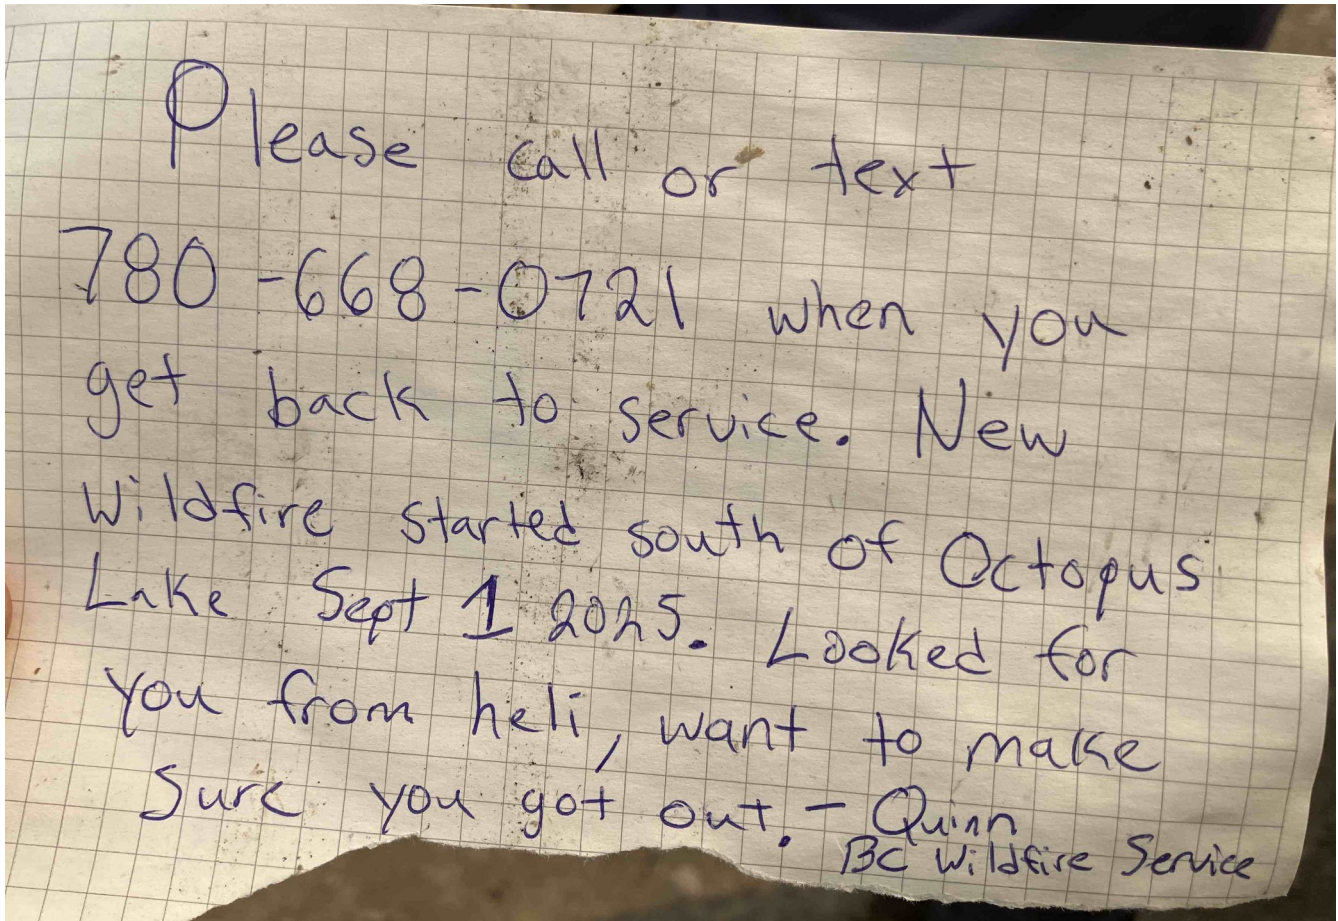 Please call or text
780-668-0721 when you
get back to service. New
Wildfire started south of Octopus
Lake Sept 1 2025. Looked for
you from heli, want to make
Sure you got out. - Quinn
BC Wildfire Service